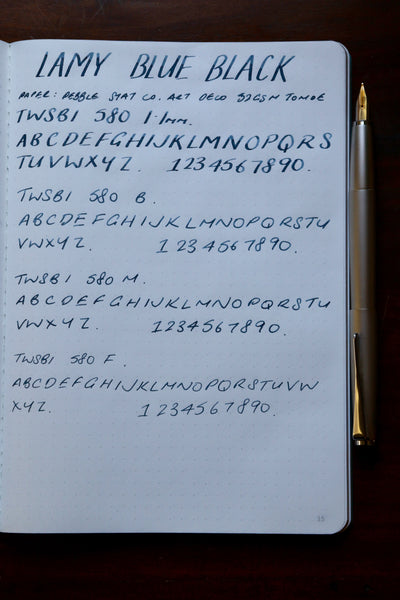 LAMY BLUE BLACK
PAPER: PEBBLE STAT CO. ART DECO 52GSM TOMOE
TWSBI 580 1.1mm.
ABCDEFGHIJKLMNOPQRS
TUVWXYZ. 1234567890.
TWSBI 580 B.
ABCDEFGHIJKLMNOPQRSTU
VWXYZ. 1234567890.
TWSBI 580 M.
ABCDEFGHIJKLMNOPQRSTU
VWXYZ. 1234567890.
TWSBI 580 F.
ABCDEFGHIJKLMNOPQRSTUVW
XYZ. 1234567890.
15